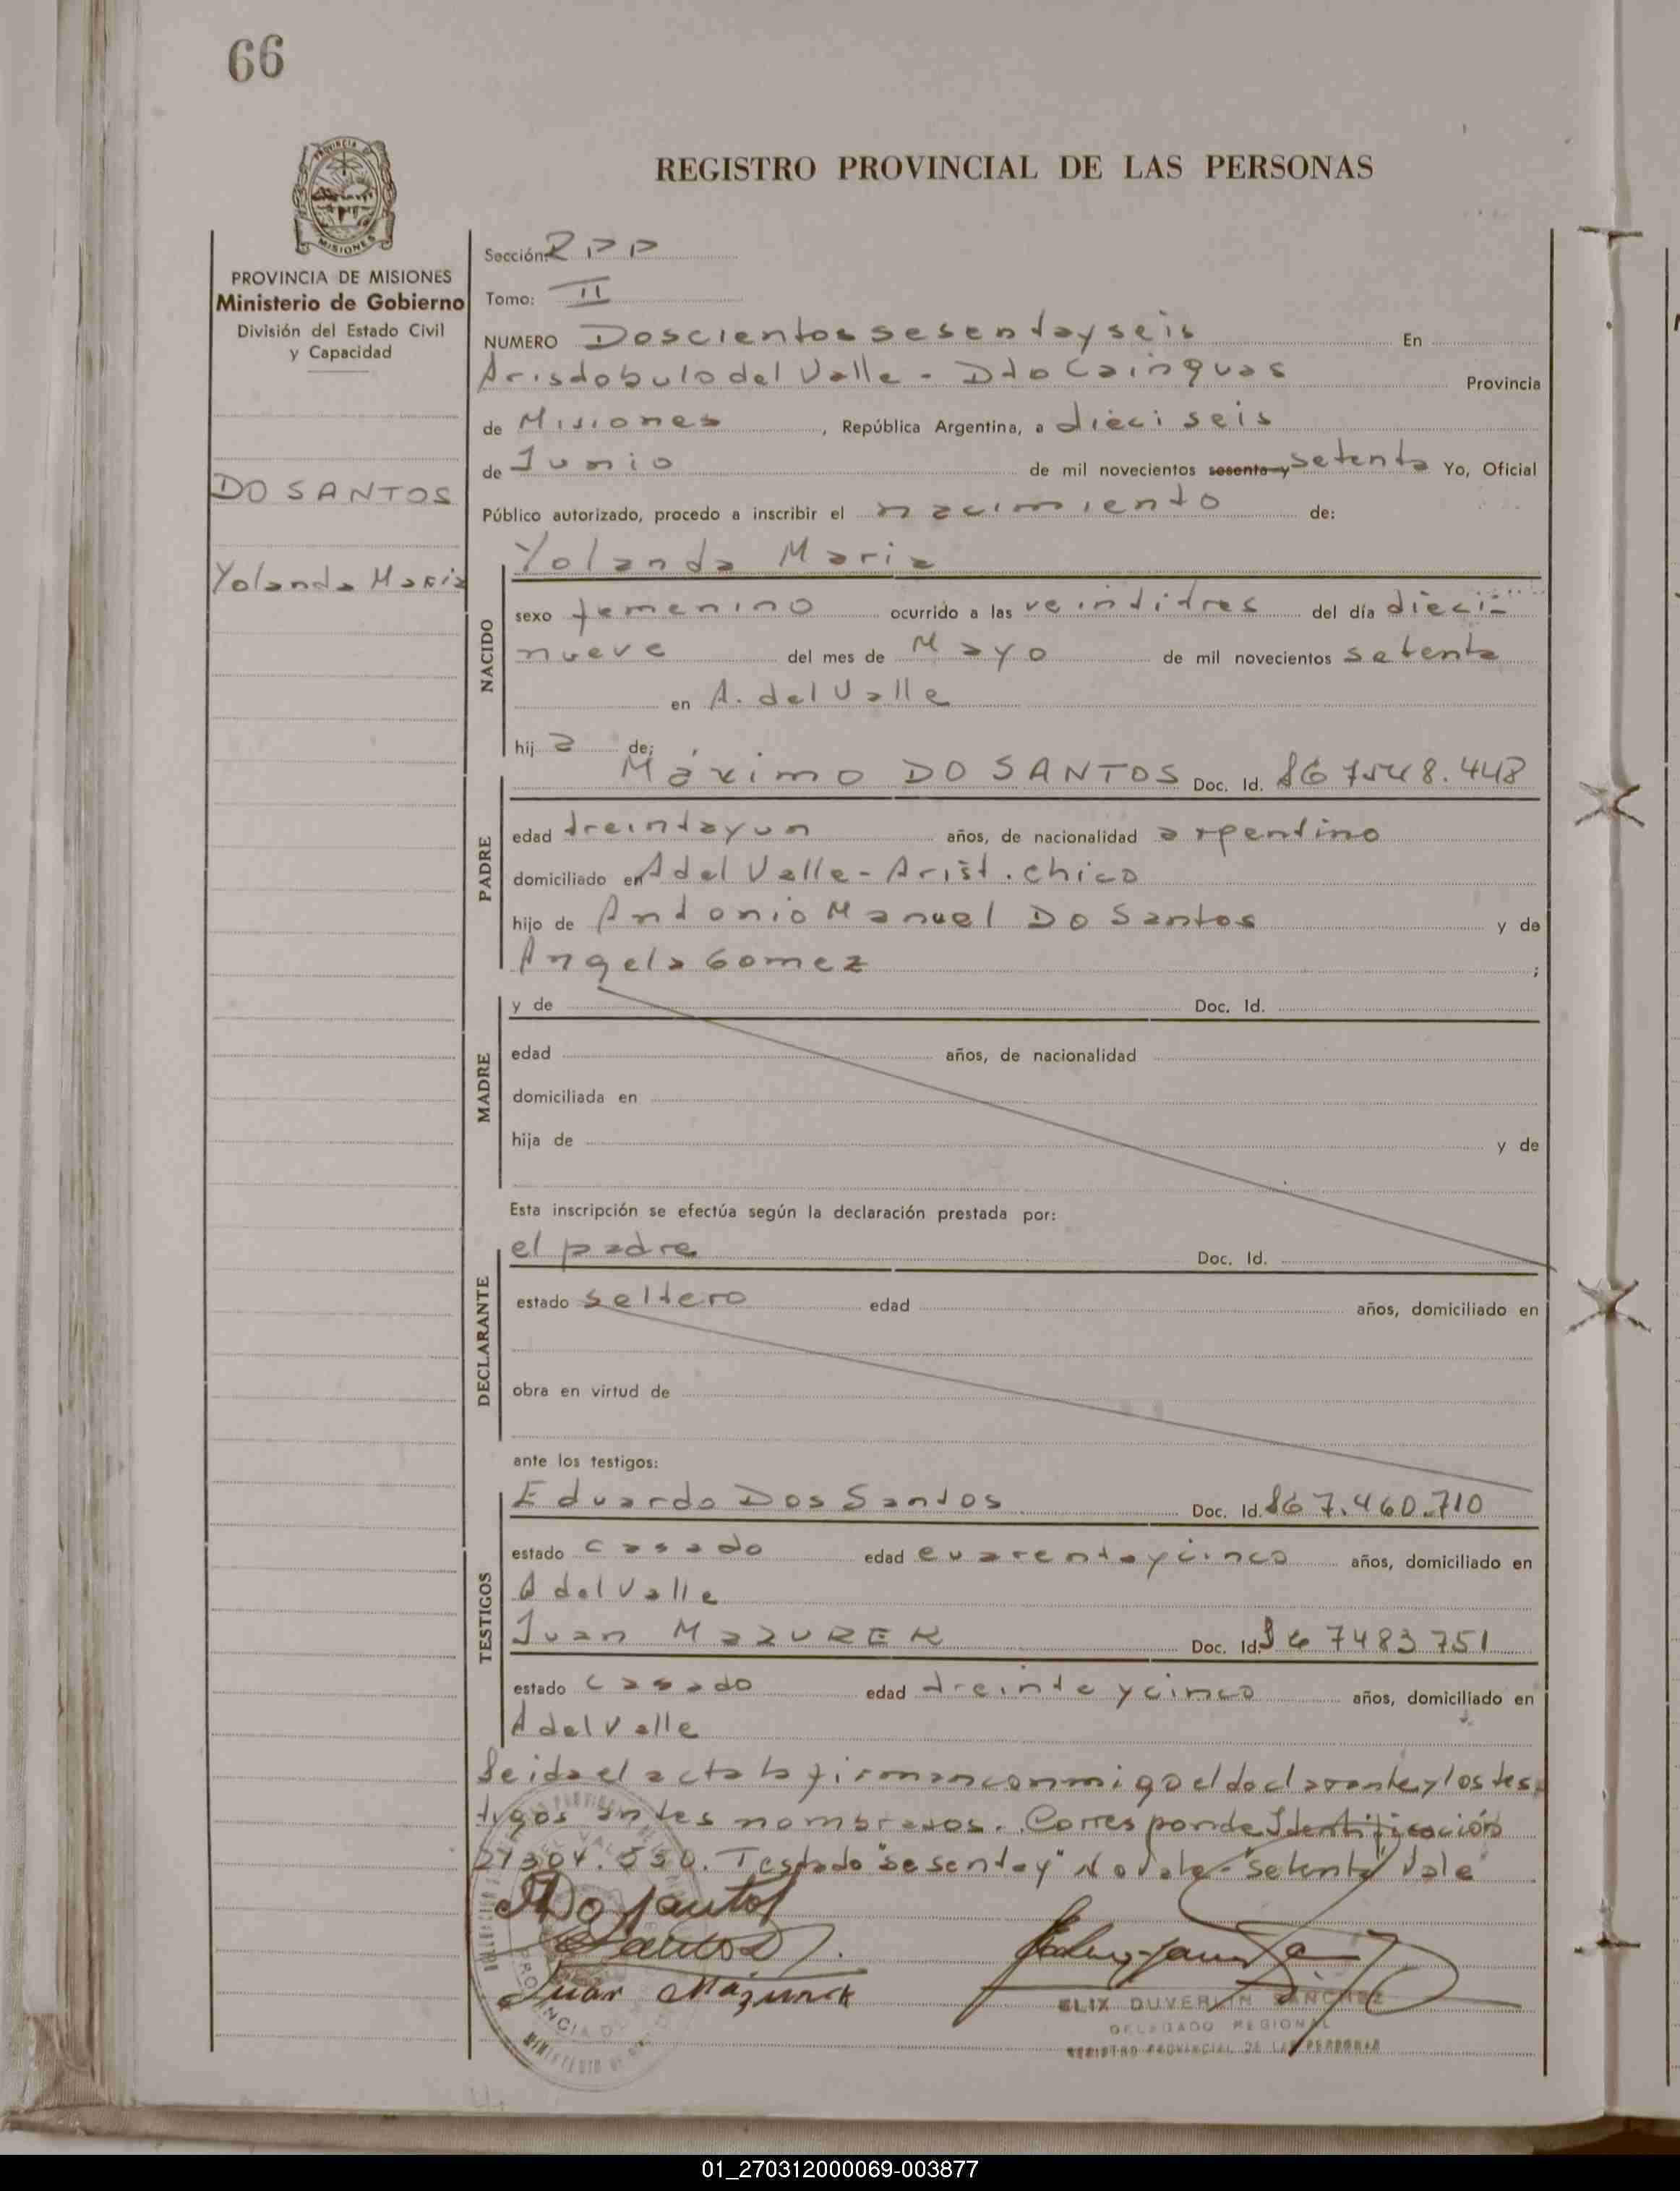 66
REGISTRO PROVINCIAL DE LAS PERSONAS
PROVINCIA DE MISIONES
Ministerio de Gobierno
División del Estado Civil
y Capacidad
DO SANTOS
Yolanda Maria
Sección: RPP
Tomo: II
NUMERO Doscientos sesenta y seis En
Aristobulo del Valle - Dto Cainguas Provincia
de Misiones, República Argentina, a dieciseis
de Junio de mil novecientos sesenta y setenta Yo, Oficial
Público autorizado, procedo a inscribir el nacimiento de:
Yolanda Maria
NACIDO
sexo femenino ocurrido a las veintitres del día dieci-
nueve del mes de Mayo de mil novecientos setenta
en A. del Valle
hija de;
PADRE
Máximo DO SANTOS Doc. Id.
edad treinta y un años, de nacionalidad argentino
domiciliado en A del Valle - Arist. chico
hijo de Antonio Manuel Do Santos y de
Angela Gomez ;
MADRE
y de Doc. Id.
edad años, de nacionalidad
domiciliada en
hija de y de
Esta inscripción se efectúa según la declaración prestada por:
DECLARANTE
el padre Doc. Id.
estado soltero edad años, domiciliado en
obra en virtud de
ante los testigos:
TESTIGOS
Eduardo Dos Santos Doc. Id. 7.460.710
estado casado edad cuarenta y cinco años, domiciliado en
A del Valle
Juan MaZUREK Doc. Id. 7483751
estado casado edad treinta y cinco años, domiciliado en
A del Valle
Leida el acta la firman conmigo el declarante y los tes-
tigos antes nombrados. Corresponde Identificación
Testado "sesenta y" No Vale - "setenta" Vale
Do Santos
Santos
Juan Mazurek
ELIX DUVERLIN SANCHEZ
DELEGADO REGIONAL
REGISTRO PROVINCIAL DE LAS PERSONAS
01_270312000069-003877